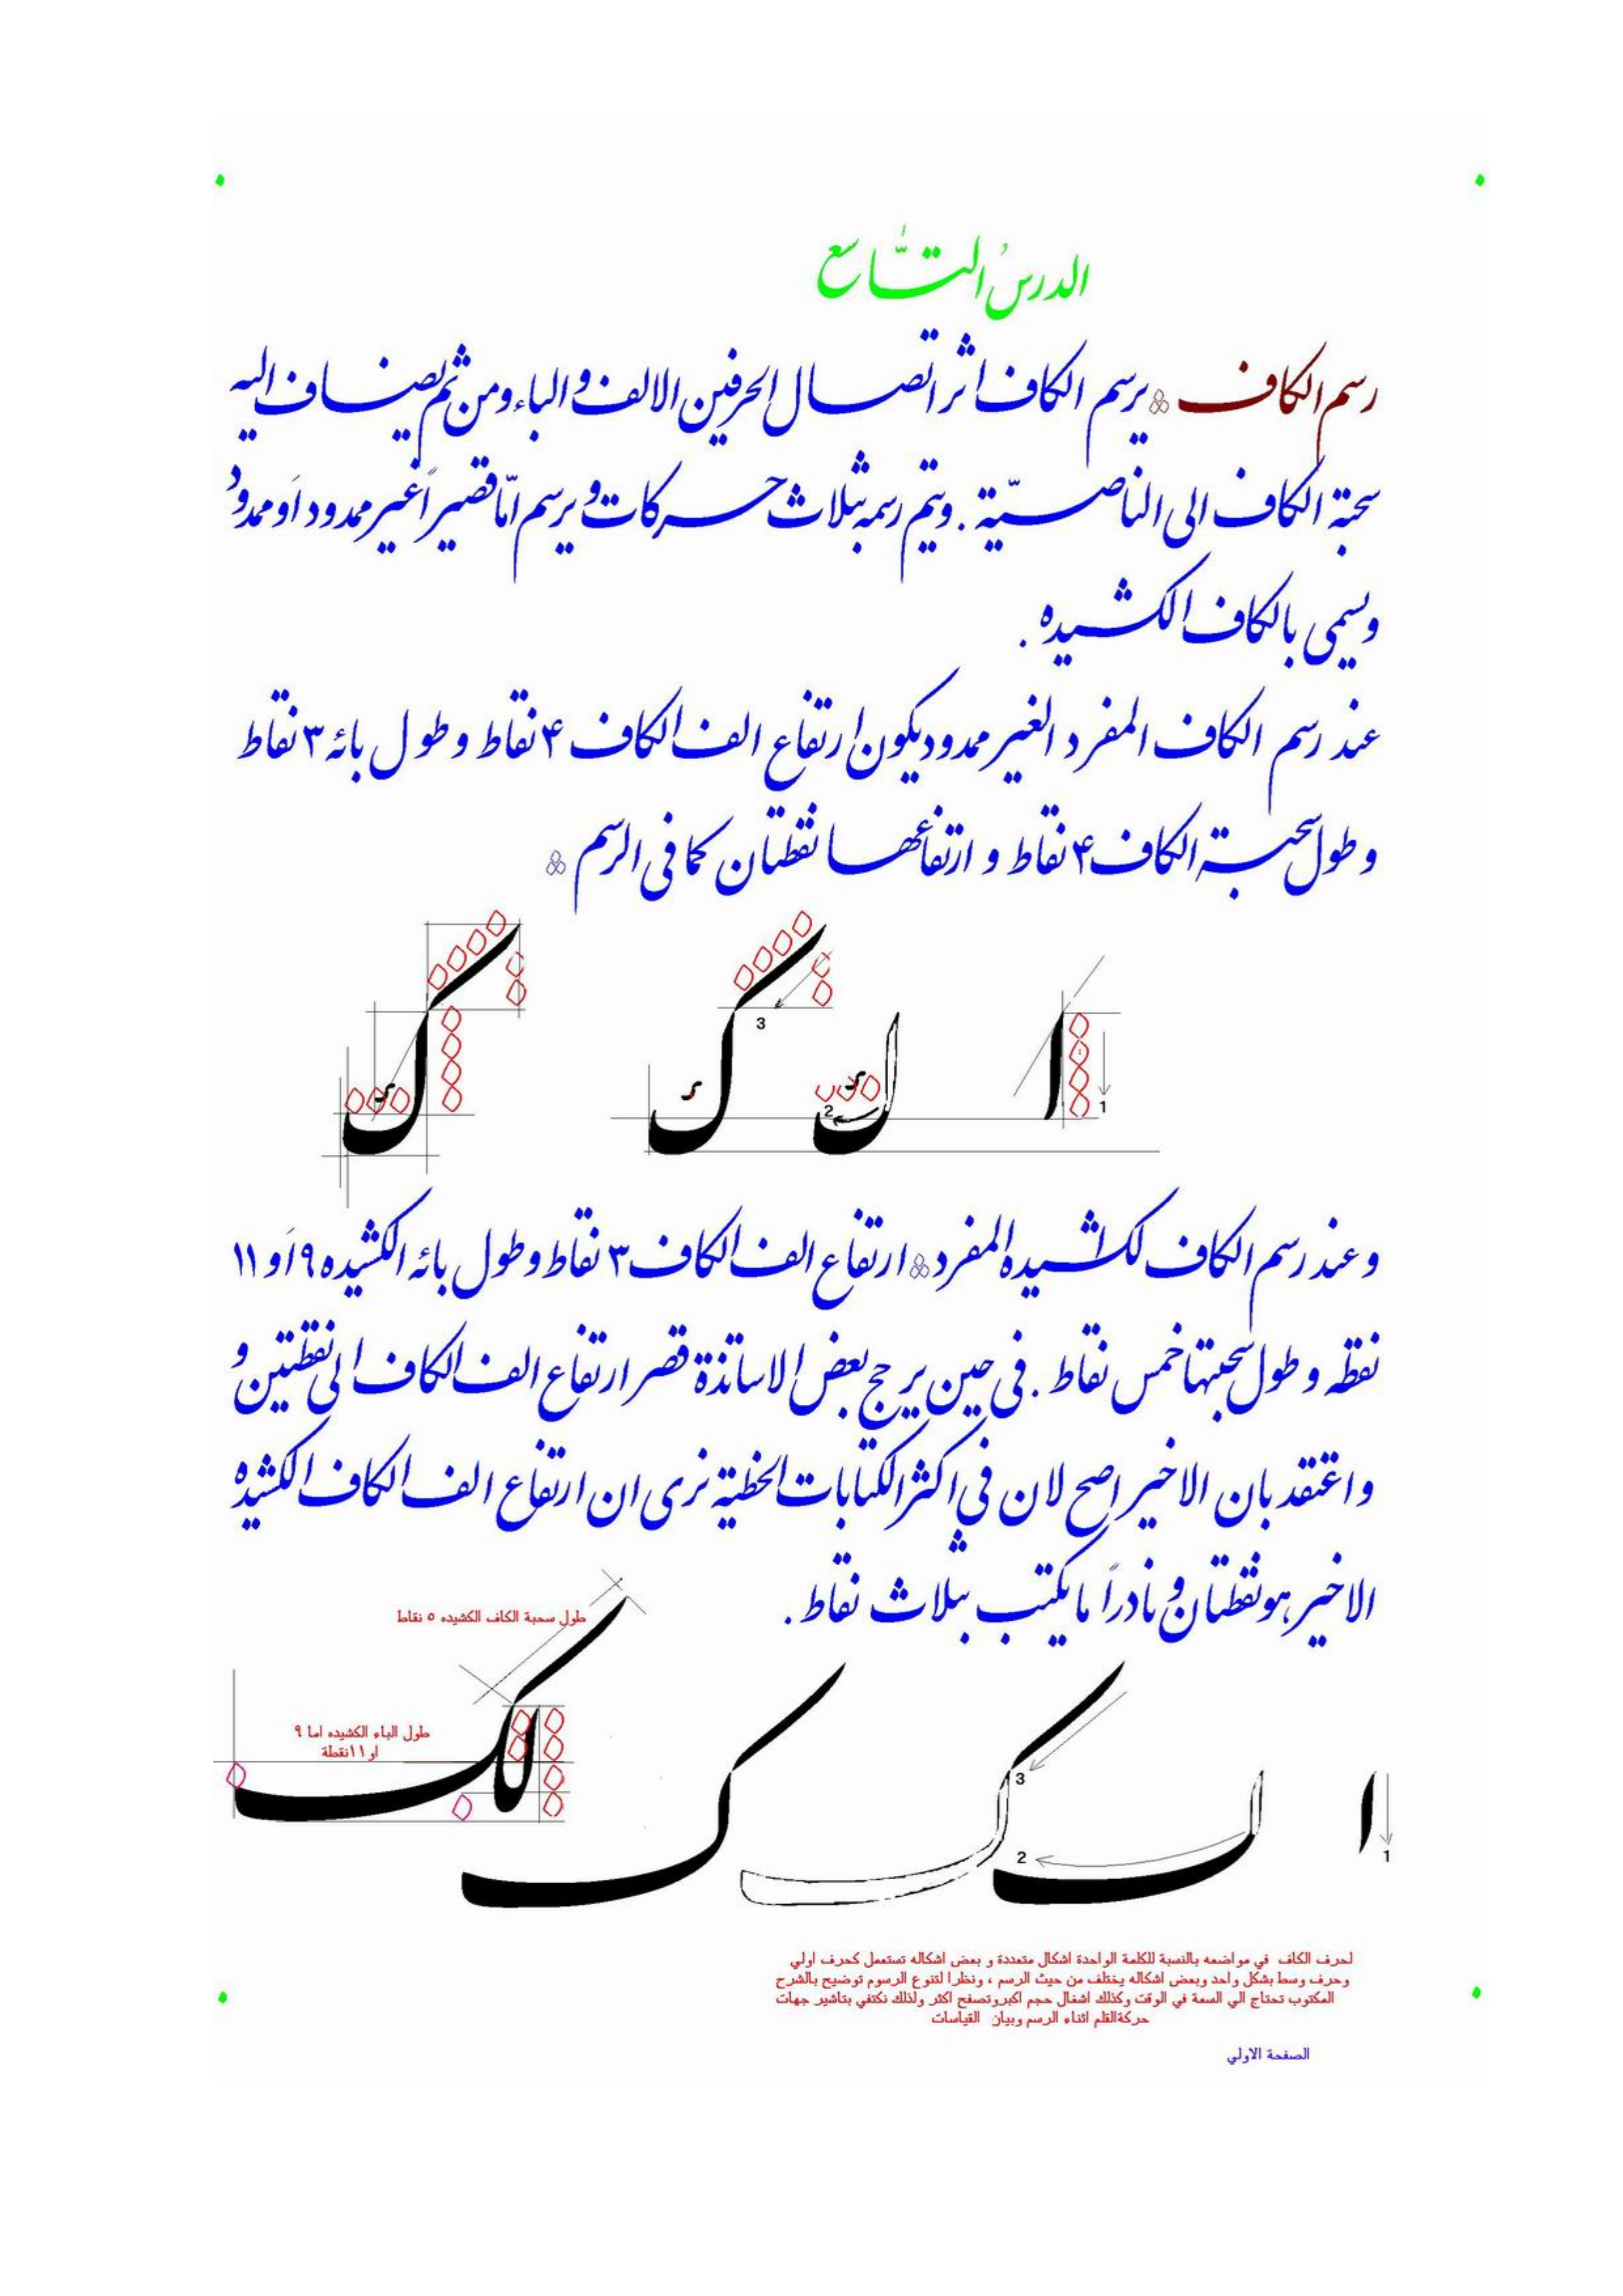 الدرسُ التّاسع
رسم الكاف يرسم الكاف اثر اتصال الحرفين الالف والباء ومن ثم يضاف اليه
سحبة الكاف الى الناصيّة . ويتم رسمه بثلاث حركات و يرسم امّا قصيراً غير ممدود أو ممدود
ويسمى بالكاف الكشيده .
عند رسم الكاف المفرد الغير ممدود يكون ارتفاع الف الكاف ۴ نقاط و طول بائه ٣ نقاط
و طول سحبة الكاف ۴ نقاط و ارتفاعها نقطتان كما فى الرسم
3
2
1
و عند رسم الكاف لكاشيده المفرد ارتفاع الف الكاف ٣ نقاط و طول بائه الكشيده ٩ أو ١١
نقطه و طول سحبتها خمس نقاط . فى حين يرجح بعض الاساتذة قصر ارتفاع الف الكاف الى نقطتين و
واعتقد بان الاخير اصح لان فى اكثر الكتابات الخطية نرى ان ارتفاع الف الكاف الكشيده
الاخير هو نقطتان و نادراً ما يكتب بثلاث نقاط .
طول سحبة الكاف الكشيده ٥ نقاط
طول الباء الكشيده اما ٩
او ١١ نقطة
3
2
1
لحرف الكاف في مواضعه بالنسبة للكلمة الواحدة اشكال متعددة و بعض اشكاله تستعمل كحرف اولي
وحرف وسط بشكل واحد وبعض اشكاله يختلف من حيث الرسم ، ونظرا لتنوع الرسوم توضيح بالشرح
المكتوب تحتاج الي السعة في الوقت وكذلك اشغال حجم اكبر وتصفح اكثر ولذلك نكتفي بتاشير جهات
حركة القلم اثناء الرسم وبيان القياسات
الصفحة الاولي